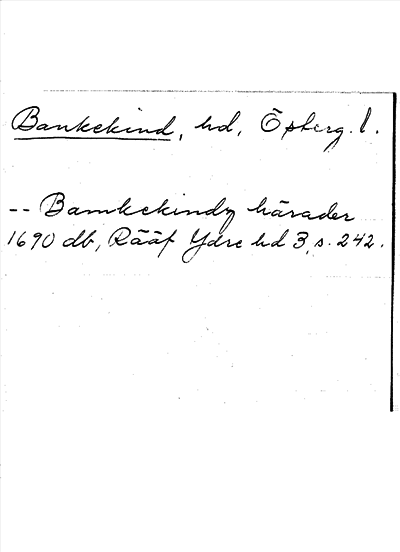 Bankekind, hd, Östberg. l.
-- Bamkekindz härader
1690 db, Rääf Ydre hd 3, s. 242.